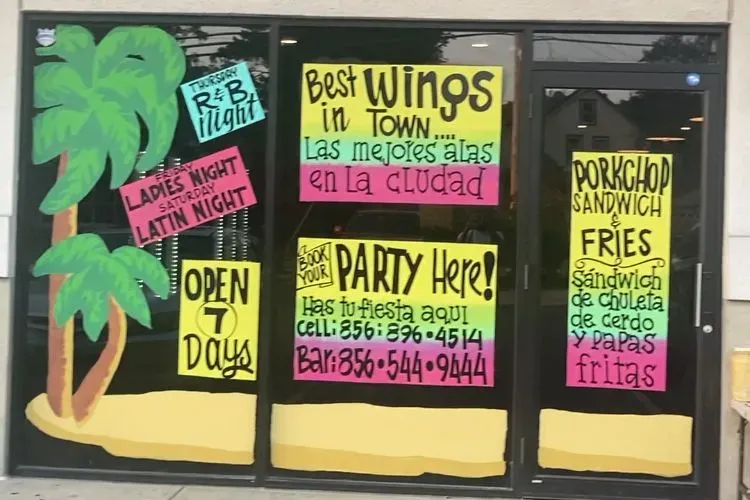 THURSDAY
R & B
Night
FRIDAY
LADIES NIGHT
SATURDAY
LATIN NIGHT
OPEN
7
Days
Best Wings
in TOWN....
Las mejores alas
en La CIUDAD
BOOK
YOUR
PARTY Here!
Has tu fiesta aqui
Cell: 856: 896 • 4514
Bar: 856 • 544 • 9444
PORKCHOP
SANDWICH
&
FRIES
Sándwich
de chuleta
de cerdo
y papas
fritas